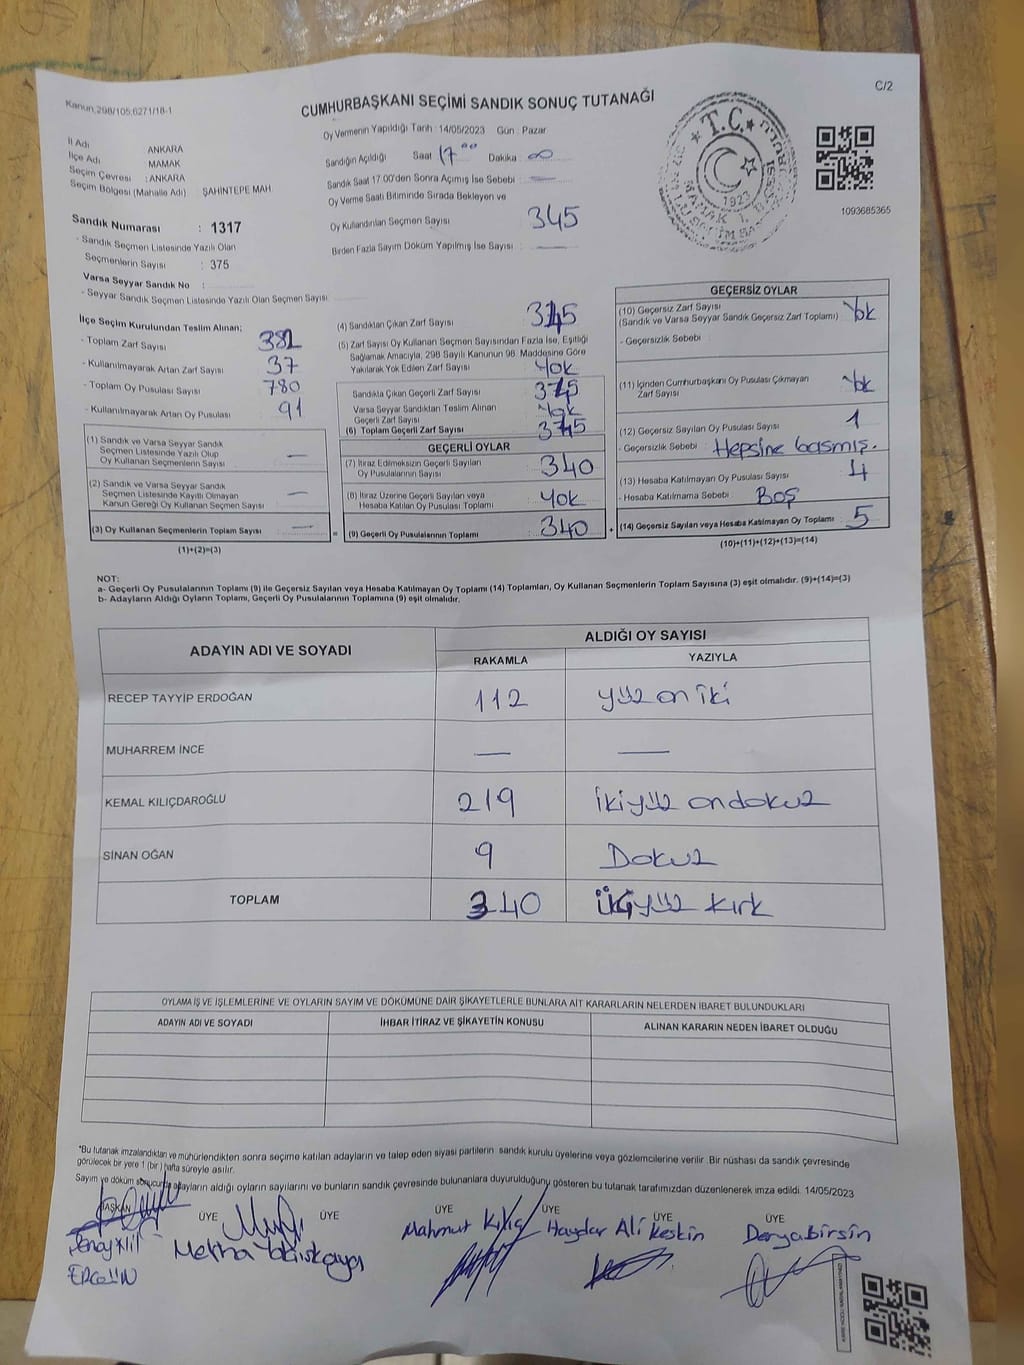 Kanun,298/105,6271/18-1
C/2
CUMHURBAŞKANI SEÇİMİ SANDIK SONUÇ TUTANAĞI
İl Adı ANKARA
İlçe Adı MAMAK
Seçim Çevresi : ANKARA
Seçim Bölgesi (Mahalle Adı) ŞAHİNTEPE MAH
Oy Vermenin Yapıldığı Tarih : 14/05/2023 Gün : Pazar
Sandığın Açıldığı Saat 17 00 Dakika 00
Sandık Saat 17.00'den Sonra Açımış İse Sebebi : —
Oy Verme Saati Bitiminde Sırada Bekleyen ve
Oy Kullandırılan Seçmen Sayısı 345
Birden Fazla Sayım Döküm Yapılmış İse Sayısı : —
T.C.
1923
1093685365
Sandık Numarası : 1317
- Sandık Seçmen Listesinde Yazılı Olan
Seçmenlerin Sayısı : 375
Varsa Seyyar Sandık No :
- Seyyar Sandık Seçmen Listesinde Yazılı Olan Seçmen Sayısı
İlçe Seçim Kurulundan Teslim Alınan;
- Toplam Zarf Sayısı 382
- Kullanılmayarak Artan Zarf Sayısı : 37
- Toplam Oy Pusulası Sayısı : 780
- Kullanılmayarak Artan Oy Pusulası : 91
(1) Sandık ve Varsa Seyyar Sandık
Seçmen Listesinde Yazılı Olup
Oy Kullanan Seçmenlerin Sayısı —
(2) Sandık ve Varsa Seyyar Sandık
Seçmen Listesinde Kayıtlı Olmayan
Kanun Gereği Oy Kullanan Seçmen Sayısı —
(3) Oy Kullanan Seçmenlerin Toplam Sayısı —
(1)+(2)=(3)
(4) Sandıktan Çıkan Zarf Sayısı 345
(5) Zarf Sayısı Oy Kullanan Seçmen Sayısından Fazla İse, Eşitliği
Sağlamak Amacıyla, 298 Sayılı Kanunun 98. Maddesine Göre
Yakılarak Yok Edilen Zarf Sayısı Yok
Sandıkta Çıkan Geçerli Zarf Sayısı 345
Varsa Seyyar Sandıktan Teslim Alınan
Geçerli Zarf Sayısı Yok
(6) Toplam Geçerli Zarf Sayısı 345
GEÇERLİ OYLAR
(7) İtiraz Edilmeksizin Geçerli Sayılan
Oy Pusulalarının Sayısı 340
(8) İtiraz Üzerine Geçerli Sayılan veya
Hesaba Katılan Oy Pusulası Toplamı Yok
(9) Geçerli Oy Pusulalarının Toplamı 340
GEÇERSİZ OYLAR
(10) Geçersiz Zarf Sayısı
(Sandık ve Varsa Seyyar Sandık Geçersiz Zarf Toplamı) Yok
- Geçersizlik Sebebi :
(11) İçinden Cumhurbaşkanı Oy Pusulası Çıkmayan
Zarf Sayısı Yok
(12) Geçersiz Sayılan Oy Pusulası Sayısı 1
- Geçersizlik Sebebi : Hepsine basmış.
(13) Hesaba Katılmayan Oy Pusulası Sayısı 4
- Hesaba Katılmama Sebebi : BOŞ
(14) Geçersiz Sayılan veya Hesaba Katılmayan Oy Toplamı 5
(10)+(11)+(12)+(13)=(14)
NOT:
a- Geçerli Oy Pusulalarının Toplamı (9) ile Geçersiz Sayılan veya Hesaba Katılmayan Oy Toplamı (14) Toplamları, Oy Kullanan Seçmenlerin Toplam Sayısına (3) eşit olmalıdır. (9)+(14)=(3)
b- Adayların Aldığı Oyların Toplamı, Geçerli Oy Pusulalarının Toplamına (9) eşit olmalıdır.
ADAYIN ADI VE SOYADI ALDIĞI OY SAYISI
RAKAMLA YAZIYLA
RECEP TAYYİP ERDOĞAN 112 yüz on iki
MUHARREM İNCE — —
KEMAL KILIÇDAROĞLU 219 ikiyüz ondokuz
SİNAN OĞAN 9 Dokuz
TOPLAM 340 üçyüz kırk
OYLAMA İŞ VE İŞLEMLERİNE VE OYLARIN SAYIM VE DÖKÜMÜNE DAİR ŞİKAYETLERLE BUNLARA AİT KARARLARIN NELERDEN İBARET BULUNDUKLARI
ADAYIN ADI VE SOYADI İHBAR İTİRAZ VE ŞİKAYETİN KONUSU ALINAN KARARIN NEDEN İBARET OLDUĞU
*Bu tutanak imzalandıktan ve mühürlendikten sonra seçime katılan adayların ve talep eden siyasi partilerin sandık kurulu üyelerine veya gözlemcilerine verilir. Bir nüshası da sandık çevresinde
görülecek bir yere 1 (bir ) hafta süreyle asılır.
Sayım ve döküm sonucunda adayların aldığı oyların sayılarını ve bunların sandık çevresinde bulunanlara duyurulduğunu gösteren bu tutanak tarafımızdan düzenlenerek imza edildi. 14/05/2023
BAŞKAN ÜYE ÜYE ÜYE ÜYE ÜYE ÜYE
Mahmut Kılıç Haydar Ali Keskin Derya birsin
ERGÜN